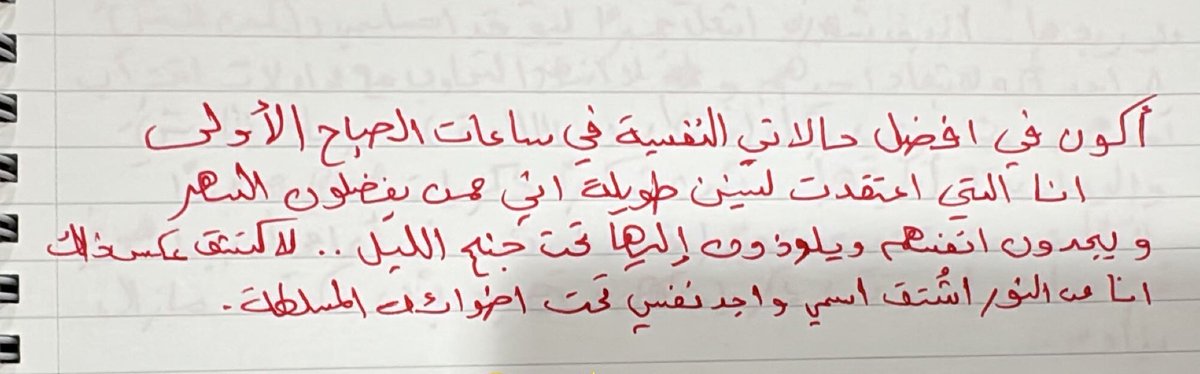 أكون في افضل حالاتي النفسية في ساعات الصباح الأولى
انا التي اعتقدت لسنين طويلة اني ممن يفضلون السهر
ويجدون انفسهم ويلوذون إليها تحت جنح الليل .. لاكتشف عكس ذلك
انا من النور اشتق اسمي واجد نفسي تحت اضوائه المسلطة.